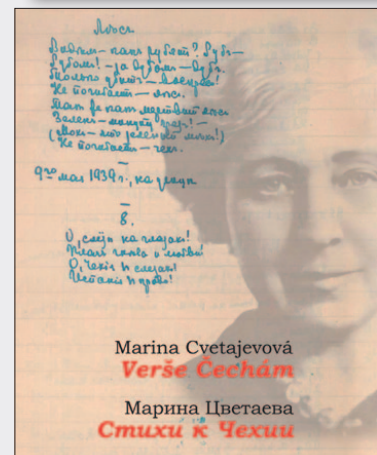 Лес
Видел — как рубят? Руб —
Рубом! — за дубом — дуб.
Только убит — воскрес!
Не погибает — лес.
Так же как мертвый лес
Зелен — минуту чрез! —
(Мох — что зеленый мех!)
Не погибает — чех.
—
9го мая 1939 г.,
—
8.
О, слезы на глазах!
Плач гнева и любви!
О, Чехия в слезах!
Испания в крови!
Marina Cvetajevová
Verše Čechám
Марина Цветаева
Стихи к Чехии